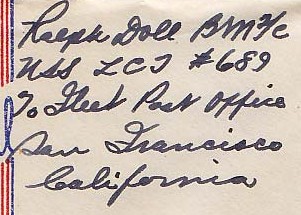 Ralph Doll BM 2/c
USS LCT #689
To Fleet Post Office
San Francisco
California